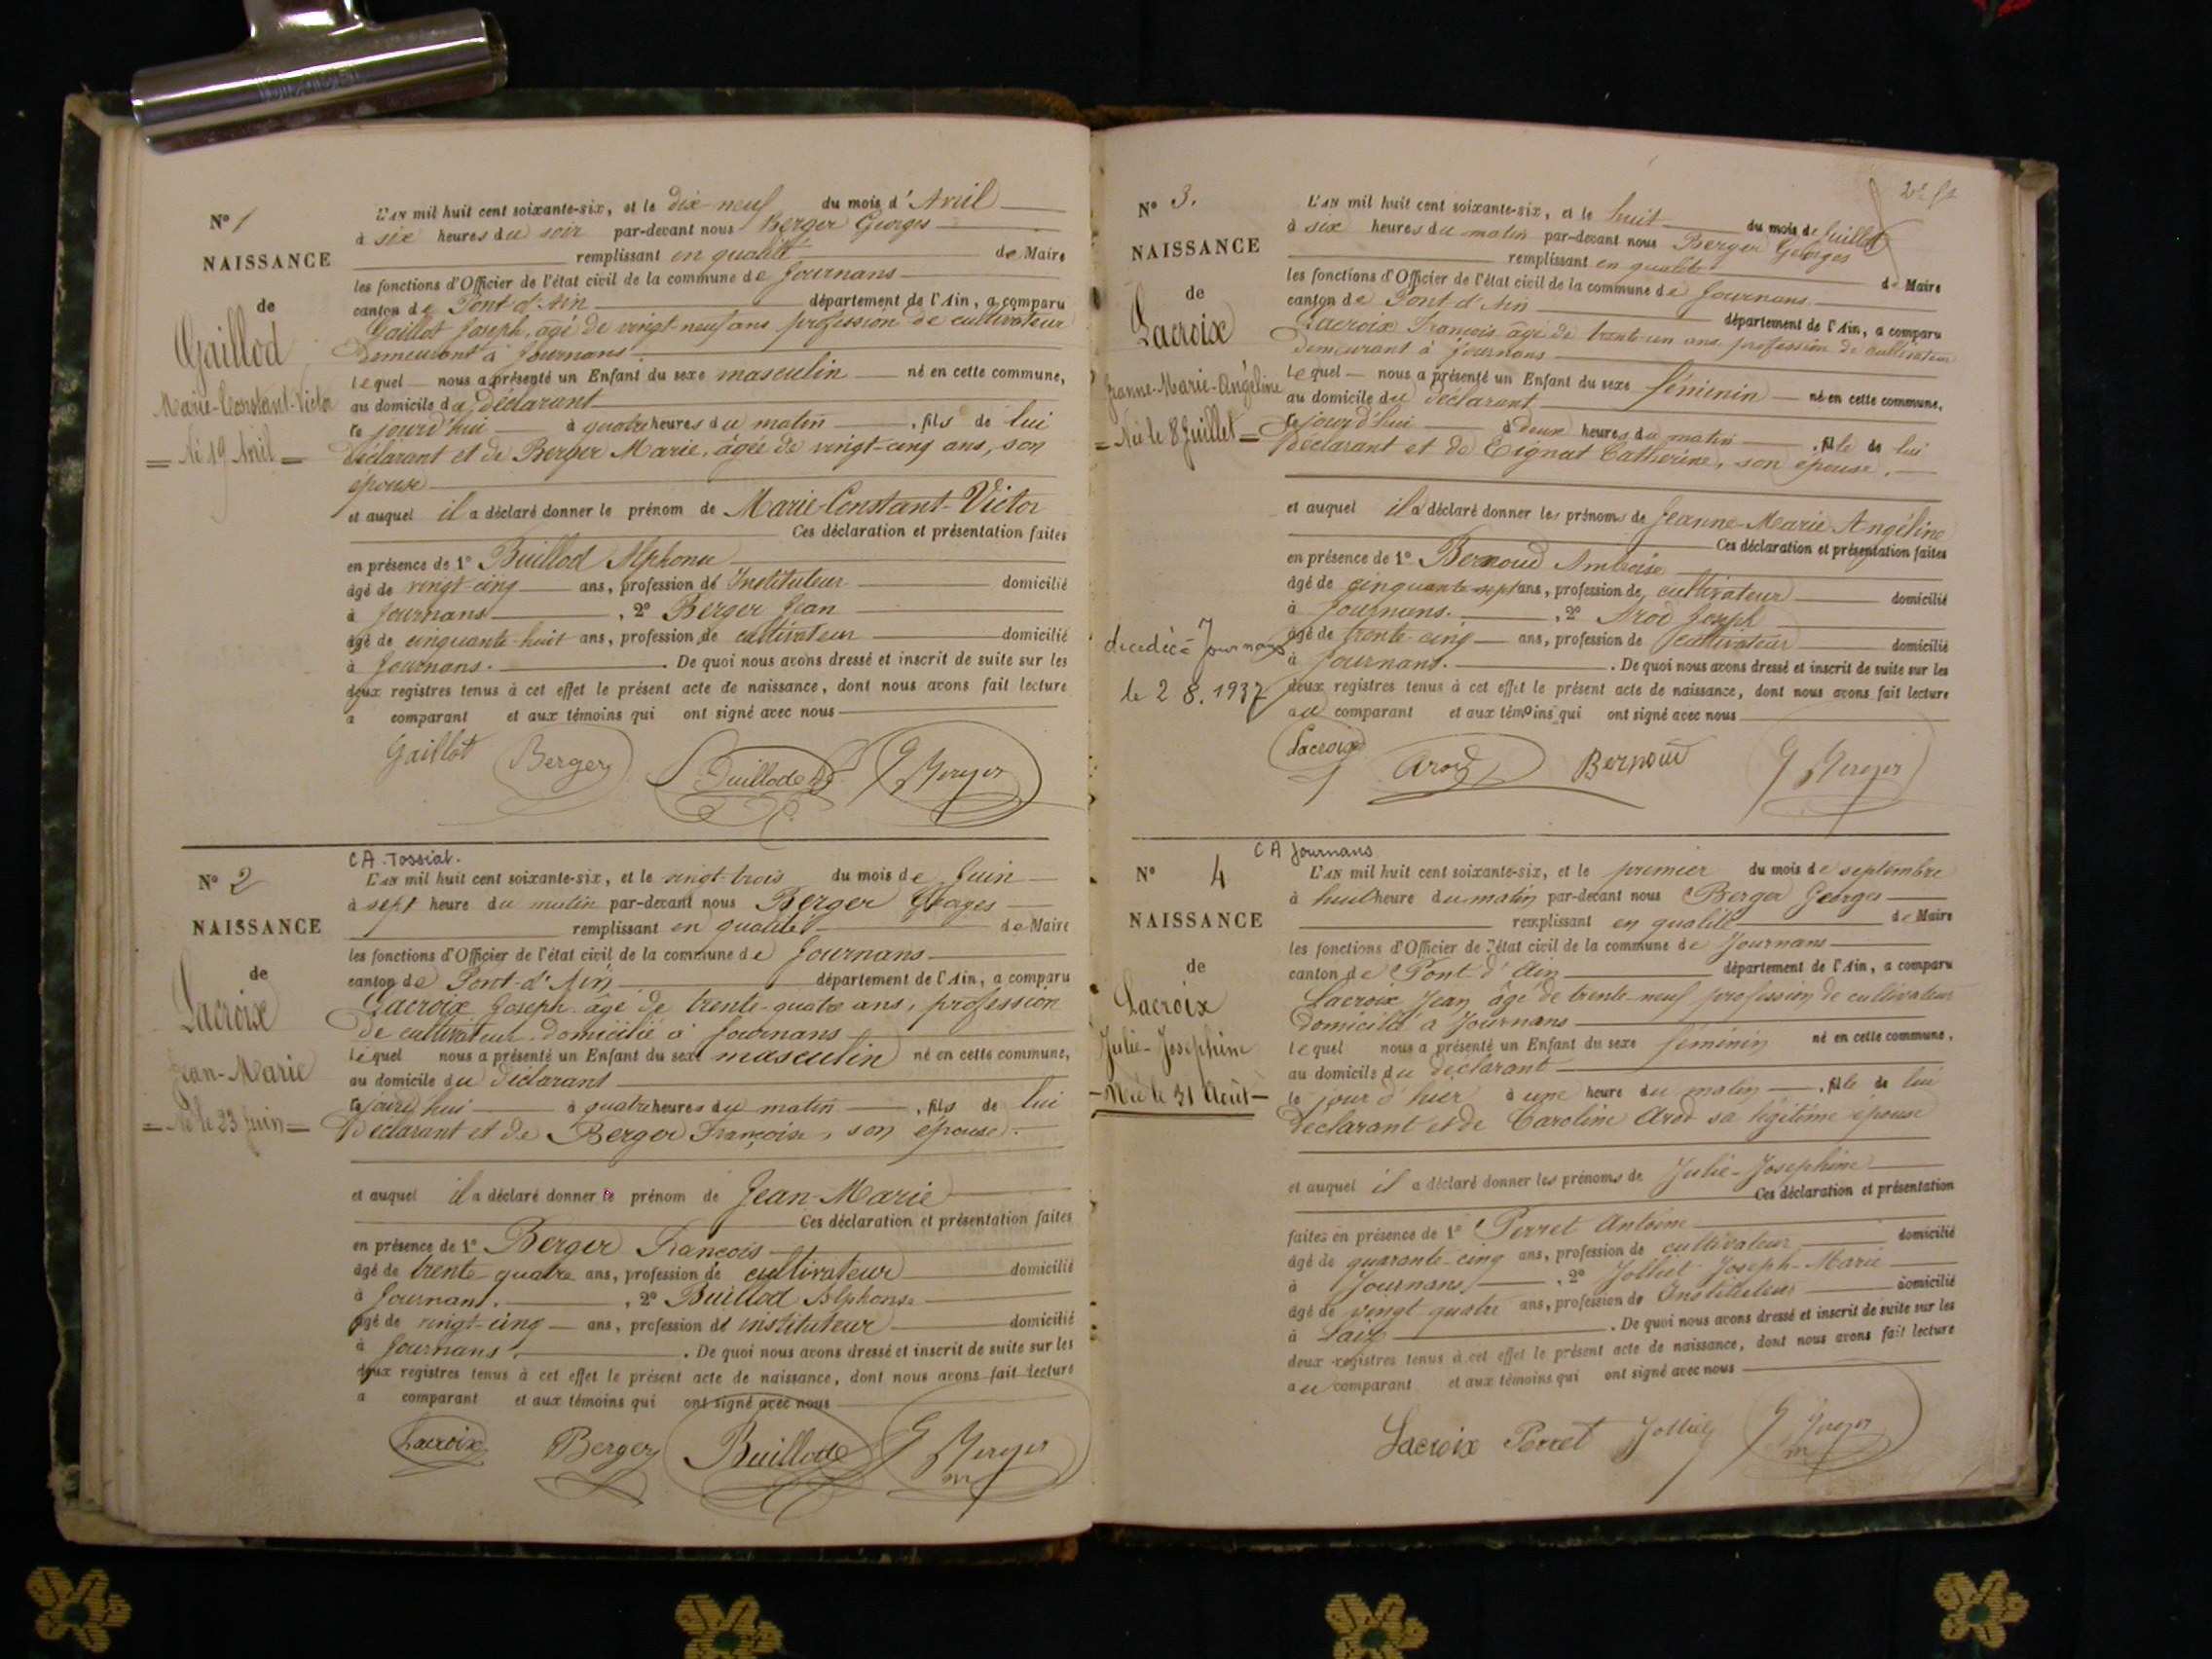 N° 1
NAISSANCE
de
Gaillod
Marie-Constant-Victor
Né 19 Avril
L'AN mil huit cent soixante-six, et le dix-neuf du mois d'Avril
à six heures du soir par-devant nous Berger Georges
remplissant en qualité de Maire
les fonctions d'Officier de l'état civil de la commune de Journans
canton de Pont-d'Ain département de l'Ain, a comparu
Gaillot Joseph, âgé de vingt neuf ans profession de cultivateur
demeurant à Journans
lequel nous a présenté un Enfant du sexe masculin né en cette commune,
au domicile du déclarant
ce jourd'hui à quatre heures du matin, fils de lui
déclarant et de Berger Marie, âgée de vingt-cinq ans, son
épouse
et auquel il a déclaré donner le prénom de Marie-Constant-Victor
Ces déclaration et présentation faites
en présence de 1° Buillod Alphonse
âgé de vingt-cinq ans, profession de Instituteur domicilié
à Journans, 2° Berger Jean
âgé de cinquante-huit ans, profession de cultivateur domicilié
à Journans. De quoi nous avons dressé et inscrit de suite sur les
deux registres tenus à cet effet le présent acte de naissance, dont nous avons fait lecture
a comparant et aux témoins qui ont signé avec nous
Gaillot Berger Buillod G Berger
N° 2
NAISSANCE
de
Lacroix
Jean-Marie
Né le 23 Juin
CA. Tossiat.
L'AN mil huit cent soixante-six, et le vingt-trois du mois de Juin
à sept heure du matin par-devant nous Berger Georges
remplissant en qualité de Maire
les fonctions d'Officier de l'état civil de la commune de Journans
canton de Pont-d'Ain département de l'Ain, a comparu
Lacroix Joseph âgé de trente-quatre ans, profession
de cultivateur domicilié à Journans
lequel nous a présenté un Enfant du sexe masculin né en cette commune,
au domicile du déclarant
ce jourd'hui à quatre heures du matin, fils de lui
déclarant et de Berger Françoise, son épouse.
et auquel il a déclaré donner le prénom de Jean-Marie
Ces déclaration et présentation faites
en présence de 1° Berger François
âgé de trente-quatre ans, profession de cultivateur domicilié
à Journans. 2° Buillod Alphonse
âgé de vingt-cinq ans, profession de instituteur domicilié
à Journans. De quoi nous avons dressé et inscrit de suite sur les
deux registres tenus à cet effet le présent acte de naissance, dont nous avons fait lecture
a comparant et aux témoins qui ont signé avec nous
Lacroix Berger Buillod G Berger
N° 3.
NAISSANCE
de
Lacroix
Jeanne-Marie-Angéline
Née le 8 Juillet
décédée à Journans
le 2 8. 1937
L'AN mil huit cent soixante-six, et le huit du mois de Juillet
à six heures du matin par-devant nous Berger Georges
remplissant en qualité de Maire
les fonctions d'Officier de l'état civil de la commune de Journans
canton de Pont-d'Ain département de l'Ain, a comparu
Lacroix François âgé de trente-un ans, profession de cultivateur
demeurant à Journans
lequel nous a présenté un Enfant du sexe féminin né en cette commune,
au domicile du déclarant
ce jourd'hui à deux heures du matin, fille de lui
déclarant et de Tignat Catherine, son épouse.
et auquel il a déclaré donner les prénoms de Jeanne-Marie Angéline
Ces déclaration et présentation faites
en présence de 1° Bernoud Ambroise
âgé de cinquante-sept ans, profession de cultivateur domicilié
à Journans. 2° Arod Joseph
âgé de trente-cinq ans, profession de cultivateur domicilié
à Journans. De quoi nous avons dressé et inscrit de suite sur les
deux registres tenus à cet effet le présent acte de naissance, dont nous avons fait lecture
au comparant et aux témoins qui ont signé avec nous
Lacroix Arod Bernoud G Berger
N° 4
NAISSANCE
de
Lacroix
Julie-Josephine
Née le 31 Août
CA Journans
L'AN mil huit cent soixante-six, et le premier du mois de septembre
à huit heure du matin par-devant nous Berger Georges
remplissant en qualité de Maire
les fonctions d'Officier de l'état civil de la commune de Journans
canton de Pont d'Ain département de l'Ain, a comparu
Lacroix Jean âgé de trente-neuf profession de cultivateur
domicilié à Journans
lequel nous a présenté un Enfant du sexe féminin né en cette commune,
au domicile du déclarant
le jour d'hier à une heure du matin, fille de lui
déclarant et de Caroline Arod sa légitime épouse
et auquel il a déclaré donner les prénoms de Julie-Josephine
Ces déclaration et présentation
faites en présence de 1° Perret Antoine
âgé de quarante-cinq ans, profession de cultivateur domicilié
à Journans, 2° Jolliet Joseph-Marie
âgé de vingt-quatre ans, profession de Instituteur domicilié
à De quoi nous avons dressé et inscrit de suite sur les
deux registres tenus à cet effet le présent acte de naissance, dont nous avons fait lecture
au comparant et aux témoins qui ont signé avec nous
Lacroix Perret Jolliet G Berger